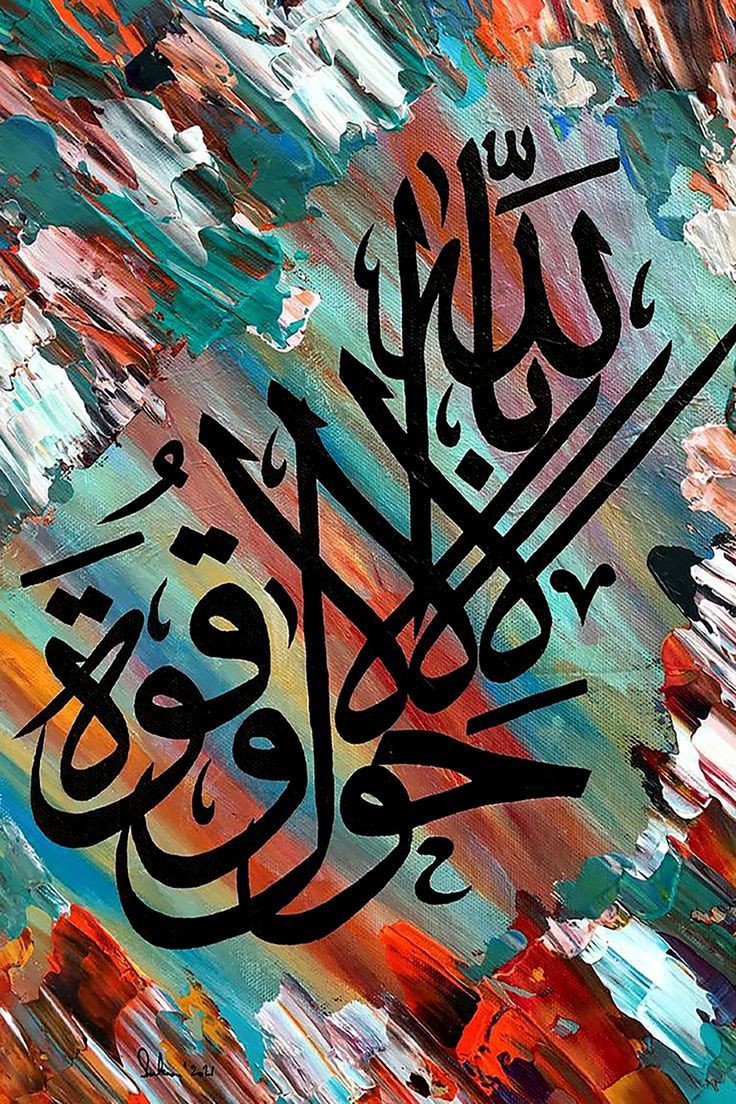 لا حول ولا قوة إلا بالله
2021